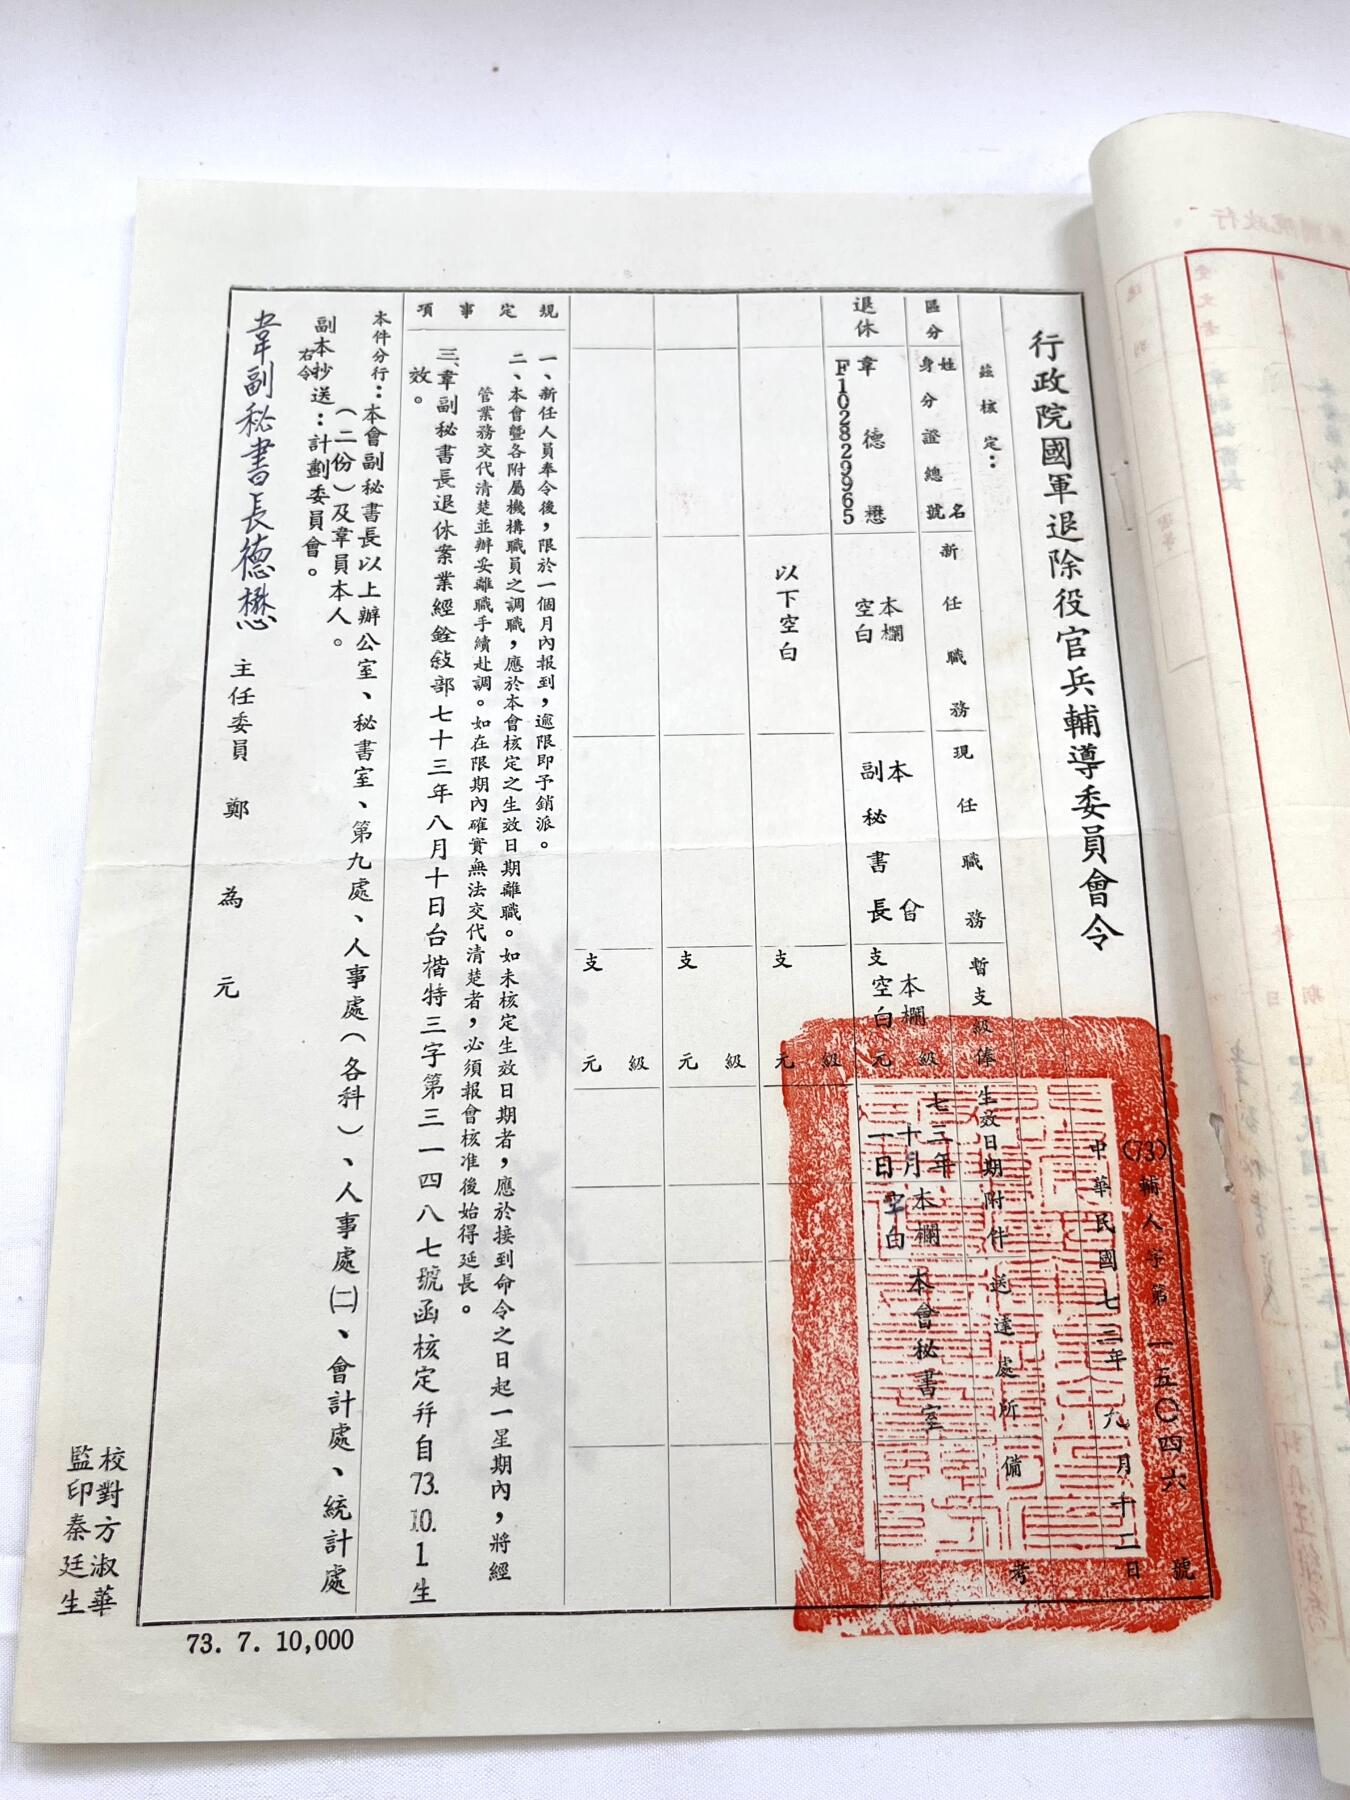 行政院國軍退除役官兵輔導委員會令
(73)輔人字第一五〇四六號
中華民國七三年九月十二日
茲核定：
區分
姓名
身分證總號
新任職務
現任職務
暫支級俸
生效日期
附件
送達處所
備考
退休
韋德懋
F102829965
本欄空白
本會副秘書長
支 級 元
本欄空白
七三年十月一日
本欄空白
本會秘書室
以下空白
支 級 元
支 級 元
支 級 元
規定事項
一、新任人員奉令後，限於一個月內報到，逾限即予銷派。
二、本會暨各附屬機構職員之調職，應於本會核定之生效日期離職。如未核定生效日期者，應於接到命令之日起一星期內，將經
管業務交代清楚並辦妥離職手續赴調。如在限期內確實無法交代清楚者，必須報會核准後始得延長。
三、韋副秘書長退休案業經銓敍部七十三年八月十日台楷特三字第三一四八七號函核定幷自73.10.1生
效。
本件分行：本會副秘書長以上辦公室、秘書室、第九處、人事處（各科）、人事處㈡、會計處、統計處
（二份）及韋員本人。
副本抄送：計劃委員會。
右令
韋副秘書長德懋
主任委員 鄭為元
校對方淑華
監印秦廷生
73. 7. 10,000